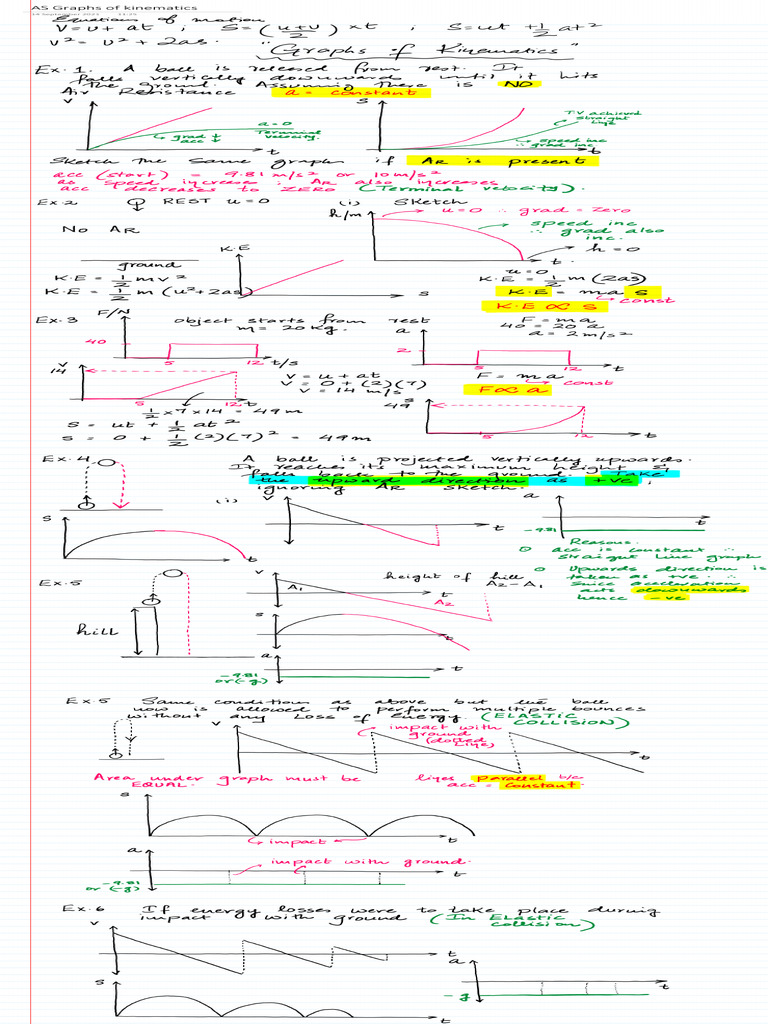 AS Graphs of kinematics
Equations of motion
V = U + at ; S = (u+v/2) × t ; S = ut + 1/2 at²
v² = u² + 2as.
"Graphs of Kinematics"
Ex. 1. A ball is released from rest. It
falls vertically downward until it hits
the ground. Assuming there is NO
Air Resistance a = constant
v
a = 0
Terminal
velocity.
↳ grad ↓
acc ↓
t
s
TV achieved
straight
line
speed inc
∴ grad inc
t
Sketch the same graph if AR is present
acc (start) = 9.81 m/s² or 10 m/s²
as speed increase ; AR also increases
acc decreases to ZERO (Terminal velocity).
Ex. 2 REST u = 0
(i) Sketch
No AR
h/m
u = 0 ∴ grad = zero
speed inc
∴ grad also
inc.
h = 0
t
K.E
s
ground
K.E = 1/2 m v²
K.E = 1/2 m (u² + 2as)
u = 0
K.E = 1/2 m (2as)
K.E = ma s
↳ const
K.E ∝ s
Ex. 3 object starts from rest
m = 20 kg.
F/N
40
5 12 t/s
F = ma
40 = 20 a
a = 2 m/s²
a
2
5 12 t
v
14
5 12 t
V = u + at
V = 0 + (2)(7)
V = 14 m/s
F = ma
↳ const
F ∝ a
1/2 × 7 × 14 = 49 m
s = ut + 1/2 at²
s = 0 + 1/2 (2)(7)² = 49 m
s
49
5 12 t
Ex. 4 A ball is projected vertically upwards.
It reaches its maximum height &
falls back to the ground. Take
the upward direction as +ve,
ignoring AR sketch.
(i)
v
t
a
-9.81
t
s
t
Reasons.
① acc is constant ∴
straight line graph
② Upwards direction is
taken as +ve ∴
since acceleration
acts downwards
hence -ve
Ex. 5
hill
v
A₁
A₂
t
height of hill
A₂ - A₁
s
t
a
-9.81
or (-g)
t
Ex. 5 Same condition as above but the ball
now is allowed to perform multiple bounces
without any loss of energy (ELASTIC
COLLISION)
v
impact with
ground
(dotted
line)
t
Area under graph must be
EQUAL.
lines parallel b/c
acc = constant.
s
↳ impact
t
a
impact with ground.
-9.81
or (-g)
t
Ex. 6 If energy losses were to take place during
impact with ground (In Elastic
collision)
v
t
a
-g
t
s
t